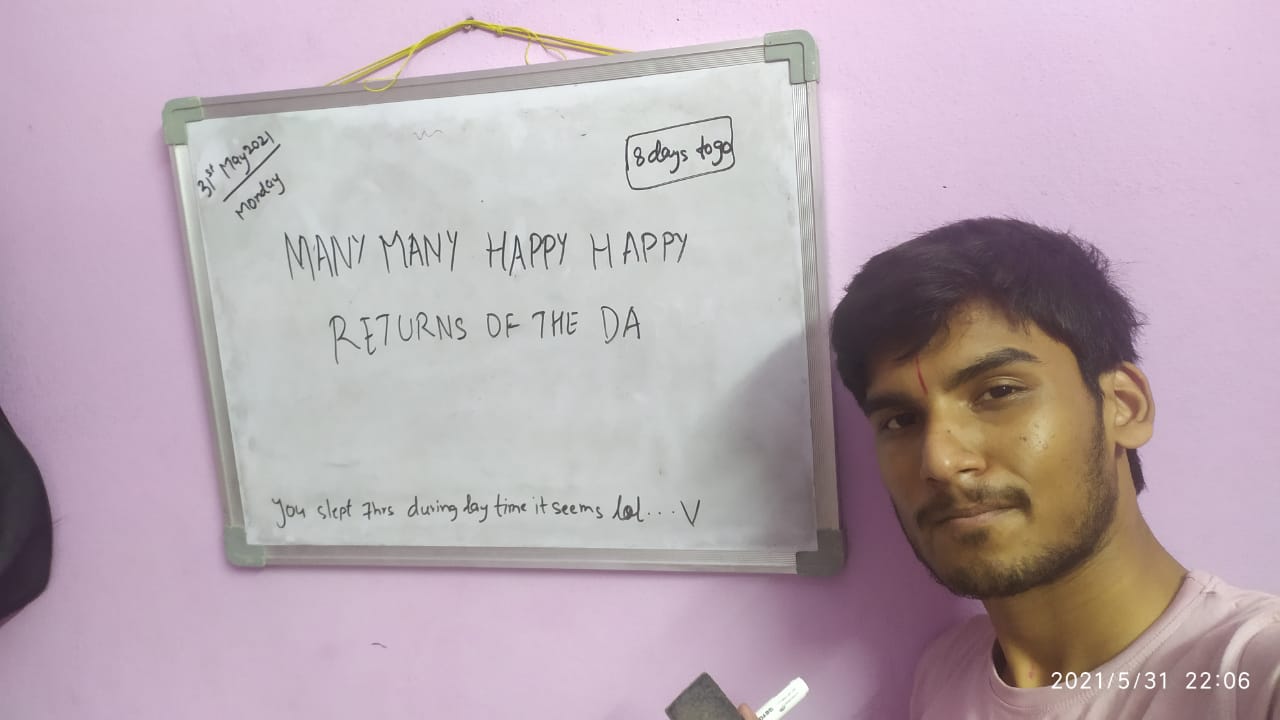 31st May 2021
Monday
8 days to go
MANY MANY HAPPY HAPPY
RETURNS OF THE DA
You slept 7hrs during day time it seems lol....V
2021/5/31 22:06